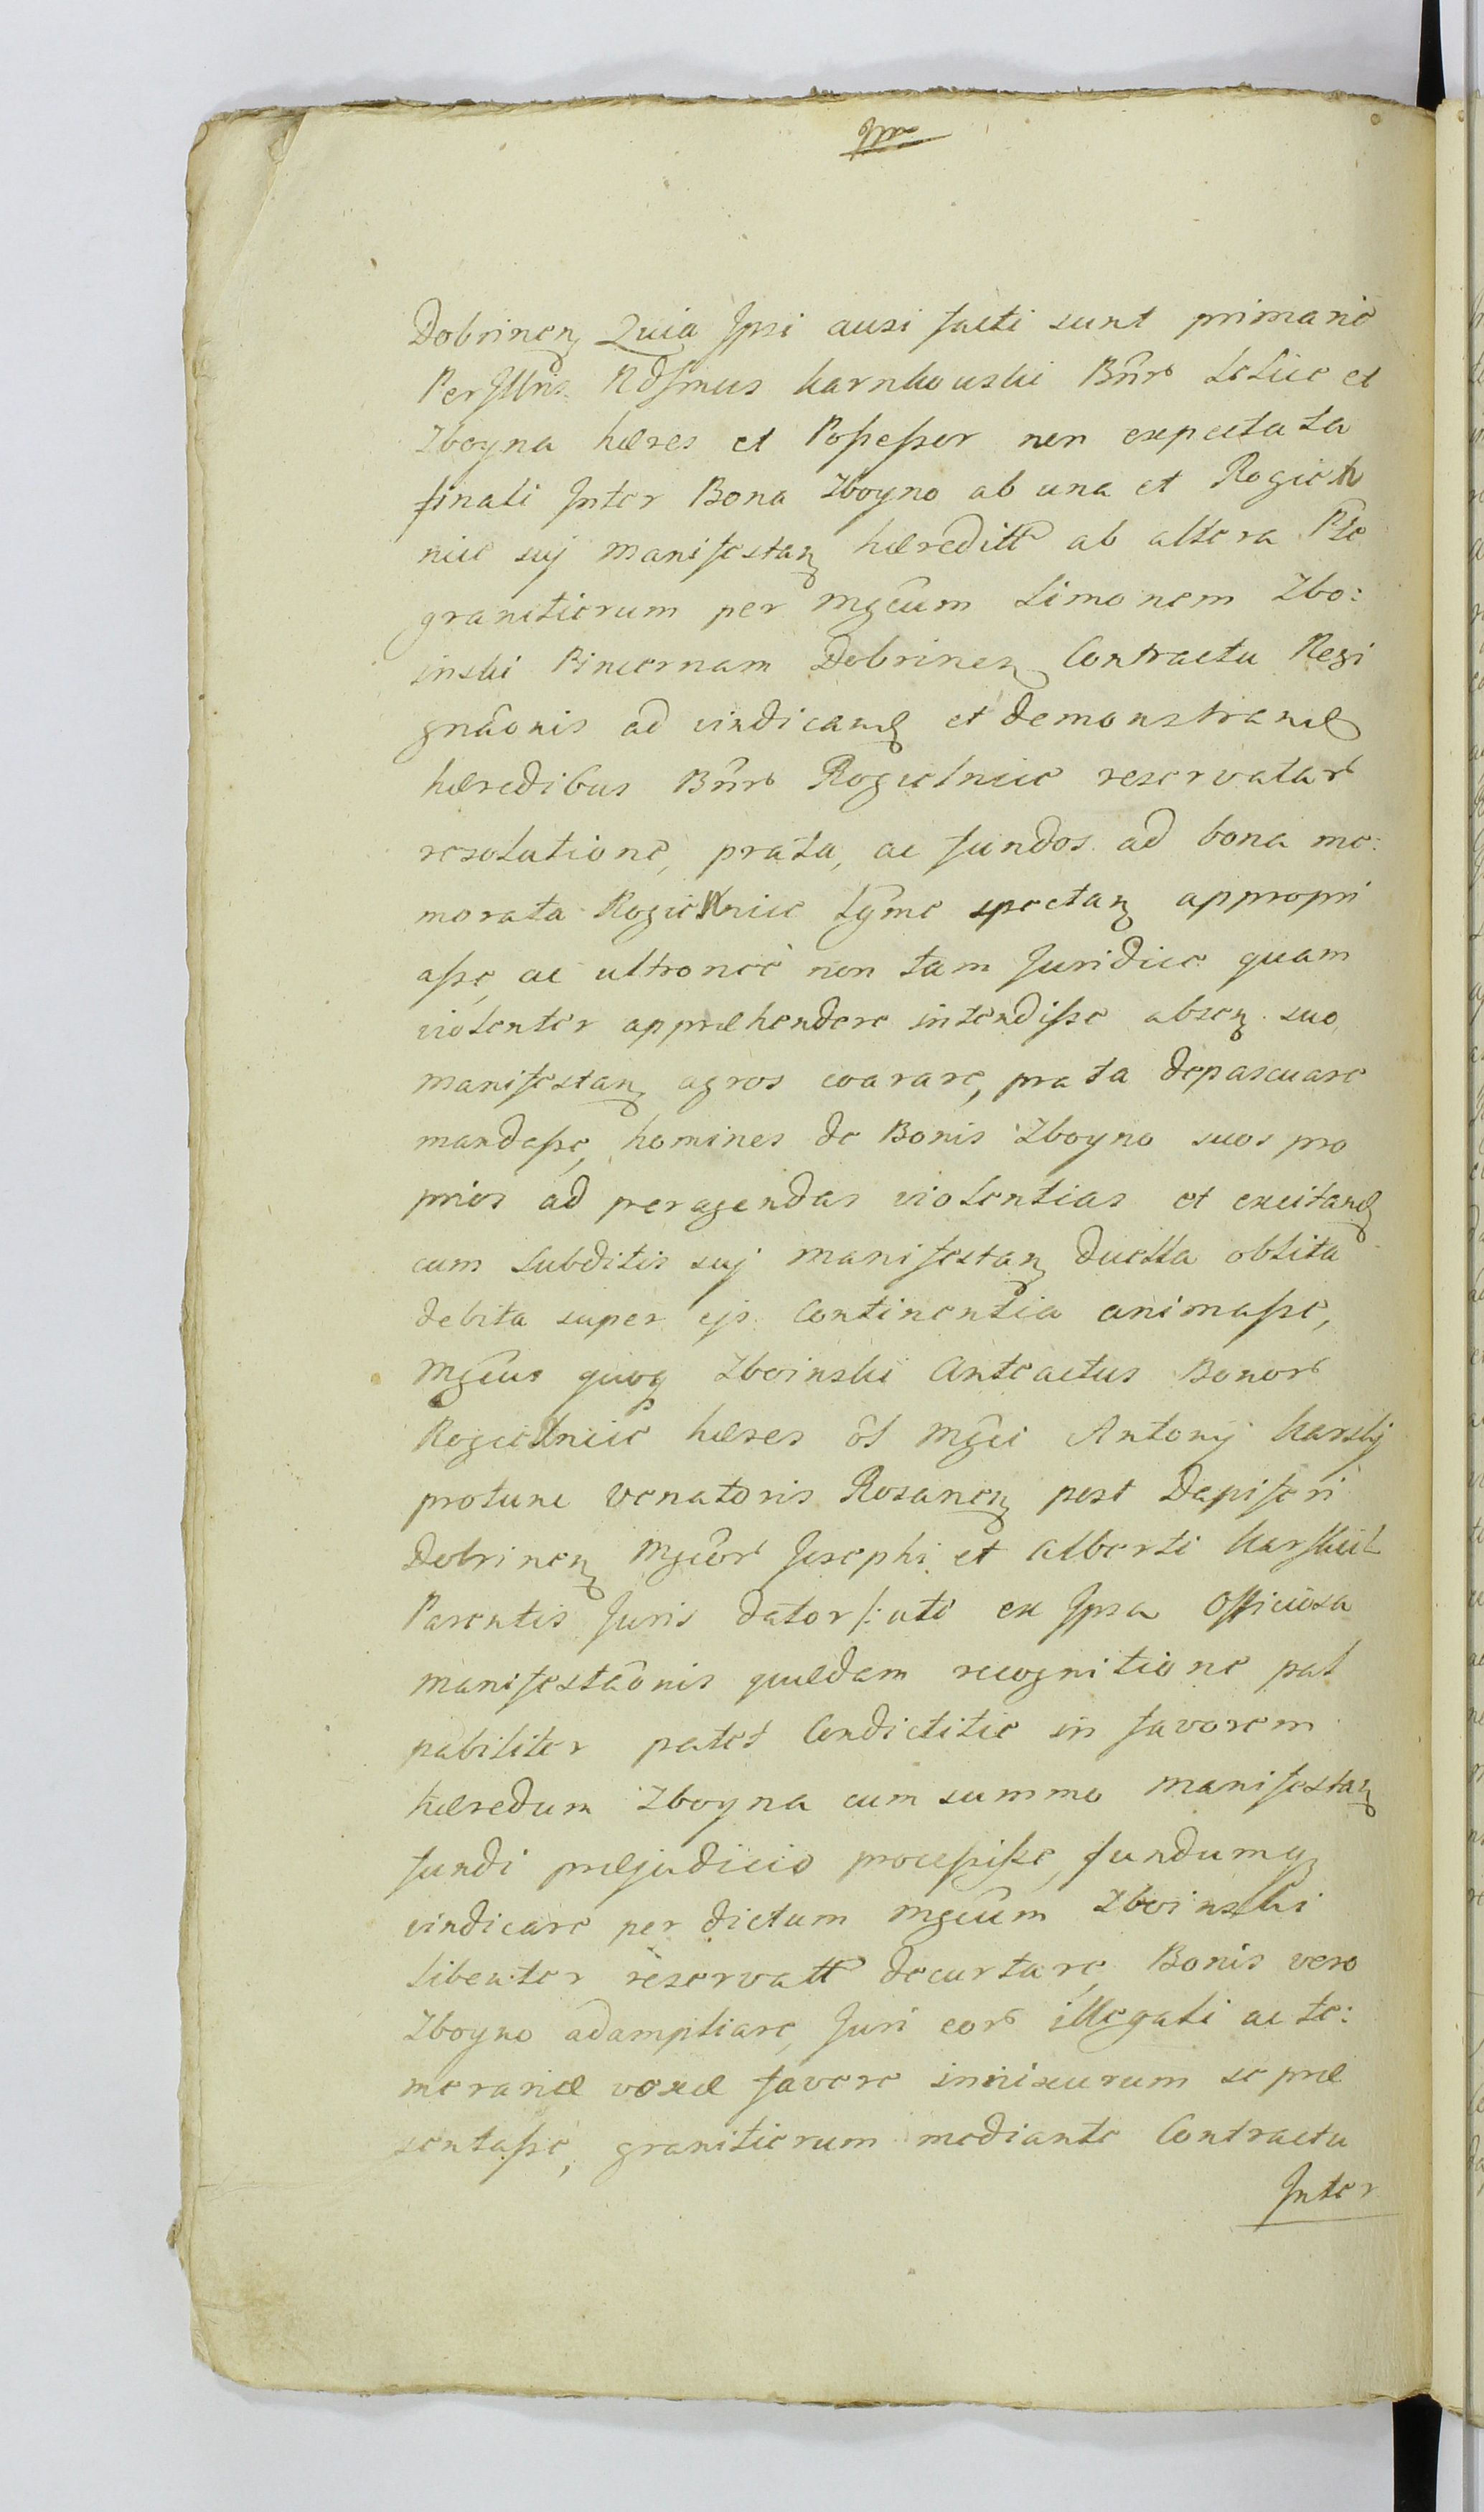 Dobrinen Quia Ipsi ausi facti sunt primario
Per Illris Rdssmus Karnkowski Bnr Lelice et
Zboyna hæres et Possessor non expectata
finali Inter Bona Zboyno ab una et Rogiel
nice suj manifestan hæreditt ab altera Pte
granitierum per Mgcum Simonem Zbo:
inski Pincernam Dobrinen Contractu Resi
gnaonis ad vindicand et demonstrand
hæredibus Bnr Rogielnice reservatar
resolutione, prata, ac fundos ad bona me:
morata Rogielnice lgme spectan appropri
asse, ac ultronee non tam Juridice quam
violenter appræhendere intendisse absen suo
manifestan agros coarare, prata depascuare
mandasse, homines de Bonis Zboyno suos pro
prios ad peragendas violentias et excitand
cum Subditis suj manifestan duella oblita
debita super ejs Continentia animasse,
Mgcus quoq Zboinski Anteactus Bonor
Rogielnice hæres ol Mgci Antonij Karskj
protunc Venatoris Rosanen post Dapiferi
Dobrinen Mgcor Josephi et Alberti Karskich
Parentis Juris dator /: uti ex Ipsa Officiosa
manifestaonis quædam recognitione pal
pabiliter patet Condictitie in favorem
hæredum Zboyna cum summo manifestan
fundi præjudicio processisse, fundumq
vindicare per dictum Mgcum Zboinski
libenter reservatt decurtare, Bonis vero
Zboyno adampliare, Juri eor illegali ac te:
merariæ vexæ favere innixurum se præ
sentasse, granitierum mediante Contractu
Inter